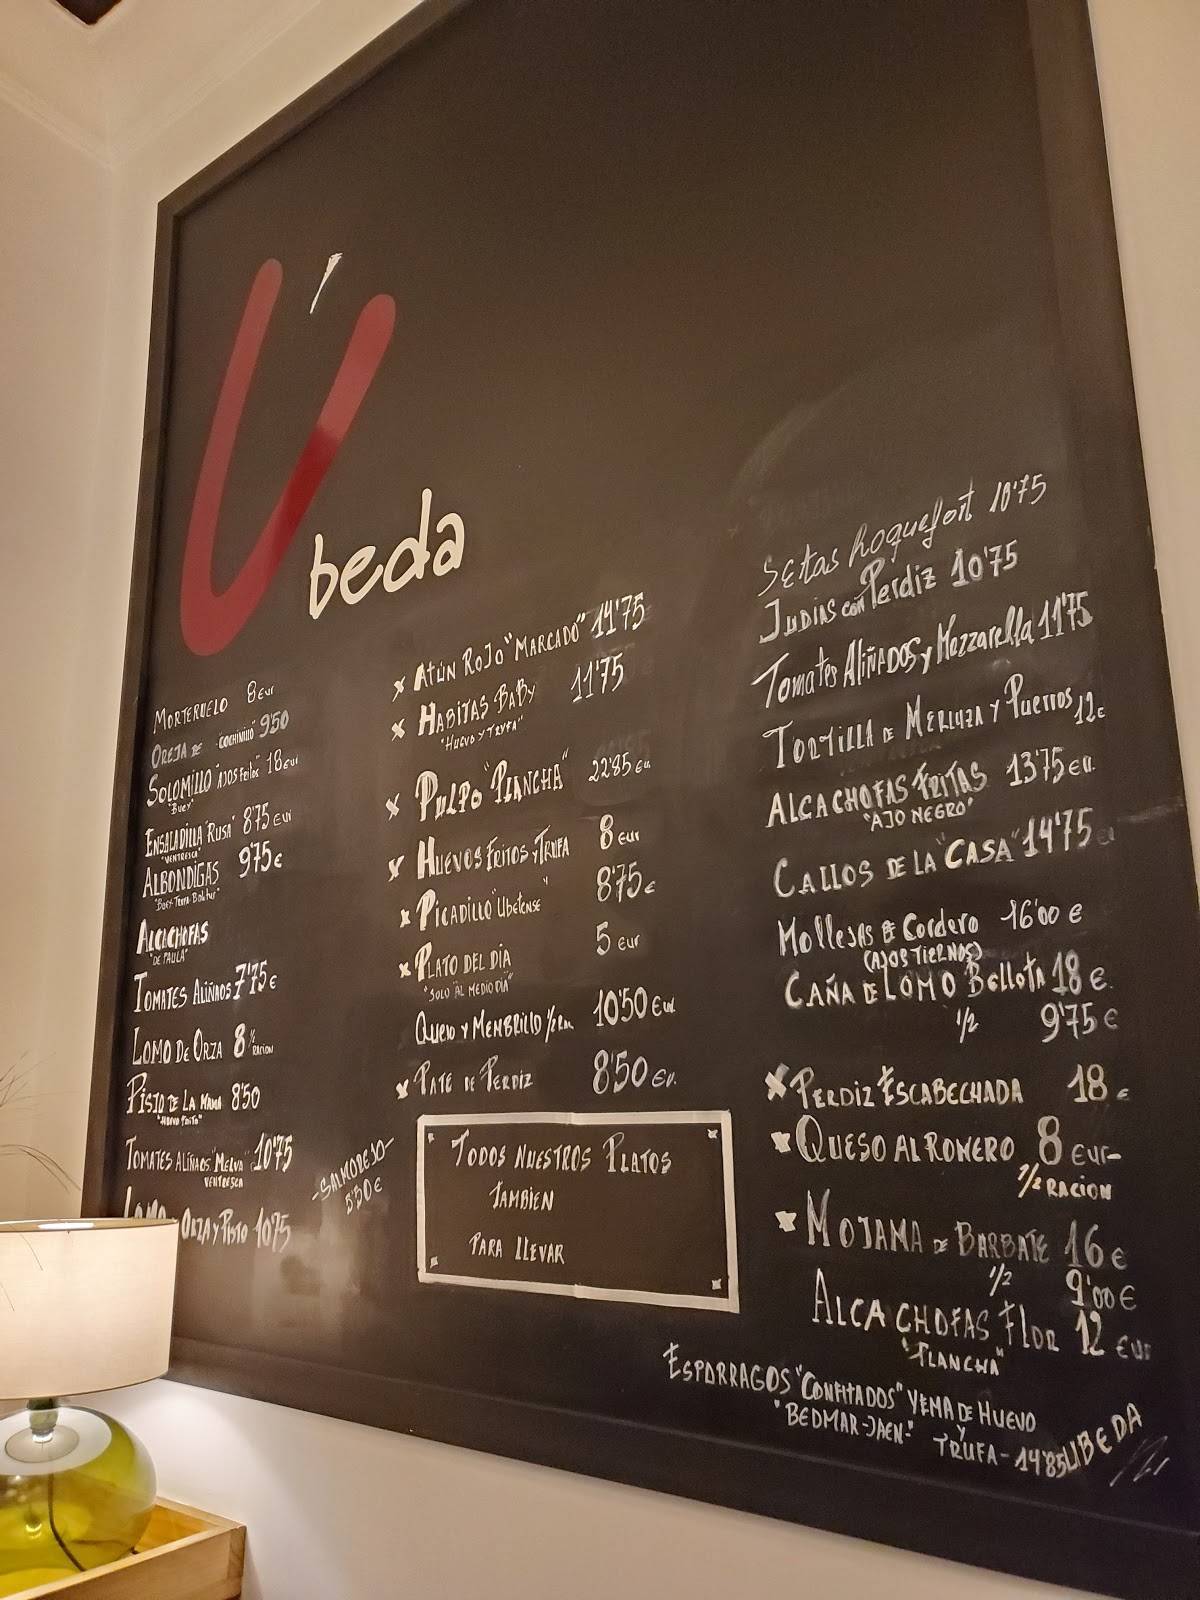 Úbeda
MORTERUELO 8 eur
OREJA DE "COCHINILLO" 9'50
SOLOMILLO "AJOS Feitos" 18 eur
"Buey"
ENSALADILLA "RUSA" 8'75 Eur
"VENTRESCA"
ALBONDIGAS 9'75 €
ALCACHOFAS
"DE PAULA"
TOMATES ALIÑAOS 7'75 €
LOMO DE ORZA 8 ½ RACION
PISTO DE LA MAMA 8'50
"HUEVO FRITO"
TOMATES ALIÑAOS "MELVA" 10'75
VENTRESCA
ORZA Y PISTO 10'75
-SALMOREJO-
5'50 €
x ATÚN ROJO "MARCADO" 14'75
x HABITAS BABY 11'75
"HUEVO Y TRUFA"
x PULPO "PLANCHA" 22'85 Eu.
x HUEVOS FRITOS Y TRUFA 8 Eur
x PICADILLO "Ubetense" 8'75 €
x PLATO DEL DÍA 5 eur
"SOLO AL MEDIODÍA"
QUESO Y MEMBRILLO 10'50 Eur.
x PATE DE PERDIZ 8'50 Eu.
TODOS NUESTROS PLATOS
TAMBIEN
PARA LLEVAR
SETAS Roquefort 10'75
JUDIAS CON PERDIZ 10'75
Tomates ALIÑADOS y Mozzarella 11'75
TORTILLA DE MERLUZA Y Puerros 12 €
ALCACHOFAS FRITAS 13'75 Eu.
"AJO NEGRO"
CALLOS DE LA "CASA" 14'75
Mollejas DE Cordero 16'00 €
(AJOS TIERNOS)
CAÑA DE LOMO Bellota 18 €.
1/2 9'75 €
x PERDIZ ESCABECHADA 18 €
x QUESO AL ROMERO 8 Eur-
1/2 RACION
x MOJAMA DE BARBATE 16 €
1/2 9'00 €
ALCACHOFAS FLOR 12 Eur
"PLANCHA"
ESPARRAGOS "CONFITADOS" YEMA DE HUEVO
"BEDMAR-JAEN-" Y TRUFA- 14'85 UBEDA